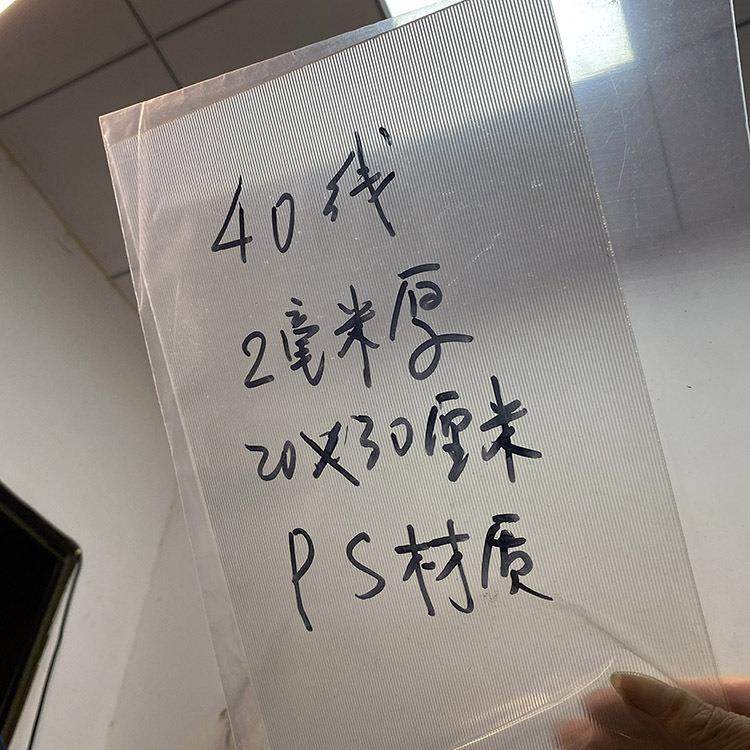 40线
2毫米厚
20X30厘米
PS材质